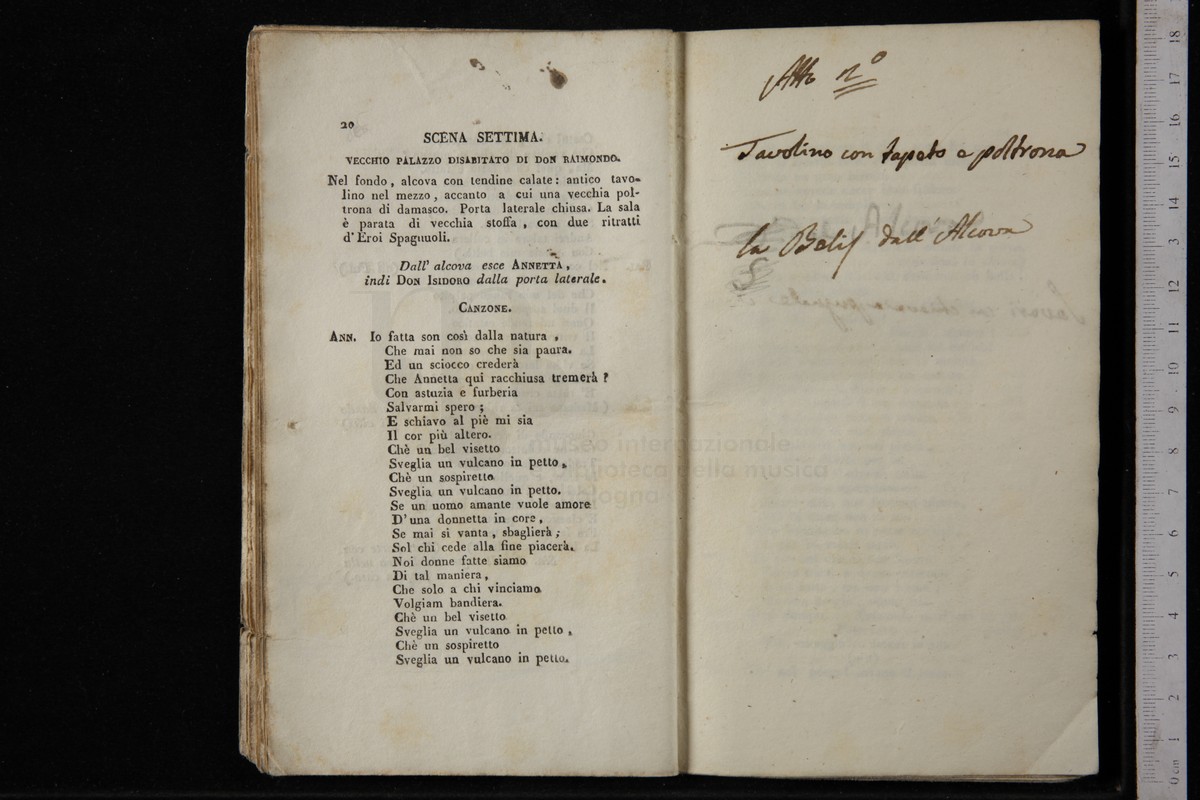 20
SCENA SETTIMA.
VECCHIO PALAZZO DISABITATO DI DON RAIMONDO.
Nel fondo, alcova con tendine calate: antico tavo-
lino nel mezzo, accanto a cui una vecchia pol-
trona di damasco. Porta laterale chiusa. La sala
è parata di vecchia stoffa, con due ritratti
d'Eroi Spagnuoli.
Dall' alcova esce ANNETTA,
indi DON ISIDORO dalla porta laterale.
CANZONE.
ANN. Io fatta son così dalla natura,
Che mai non so che sia paura.
Ed un sciocco crederà
Che Annetta qui racchiusa tremerà?
Con astuzia e furberia
Salvarmi spero;
E schiavo al piè mi sia
Il cor più altero.
Chè un bel visetto
Sveglia un vulcano in petto,
Chè un sospiretto
Sveglia un vulcano in petto.
Se un uomo amante vuole amore
D'una donnetta in core,
Se mai si vanta, sbaglierà;
Sol chi cede alla fine piacerà.
Noi donne fatte siamo
Di tal maniera,
Che solo a chi vinciamo
Volgiam bandiera.
Chè un bel visetto
Sveglia un vulcano in petto,
Chè un sospiretto
Sveglia un vulcano in petto.
Atto
Tavolino con tapeto e poltrona
la dall' Alcova
museo internazionale
e biblioteca della musica
bologna
0 cm 1 2 3 4 5 6 7 8 9 10 11 12 13 14 15 16 17 18